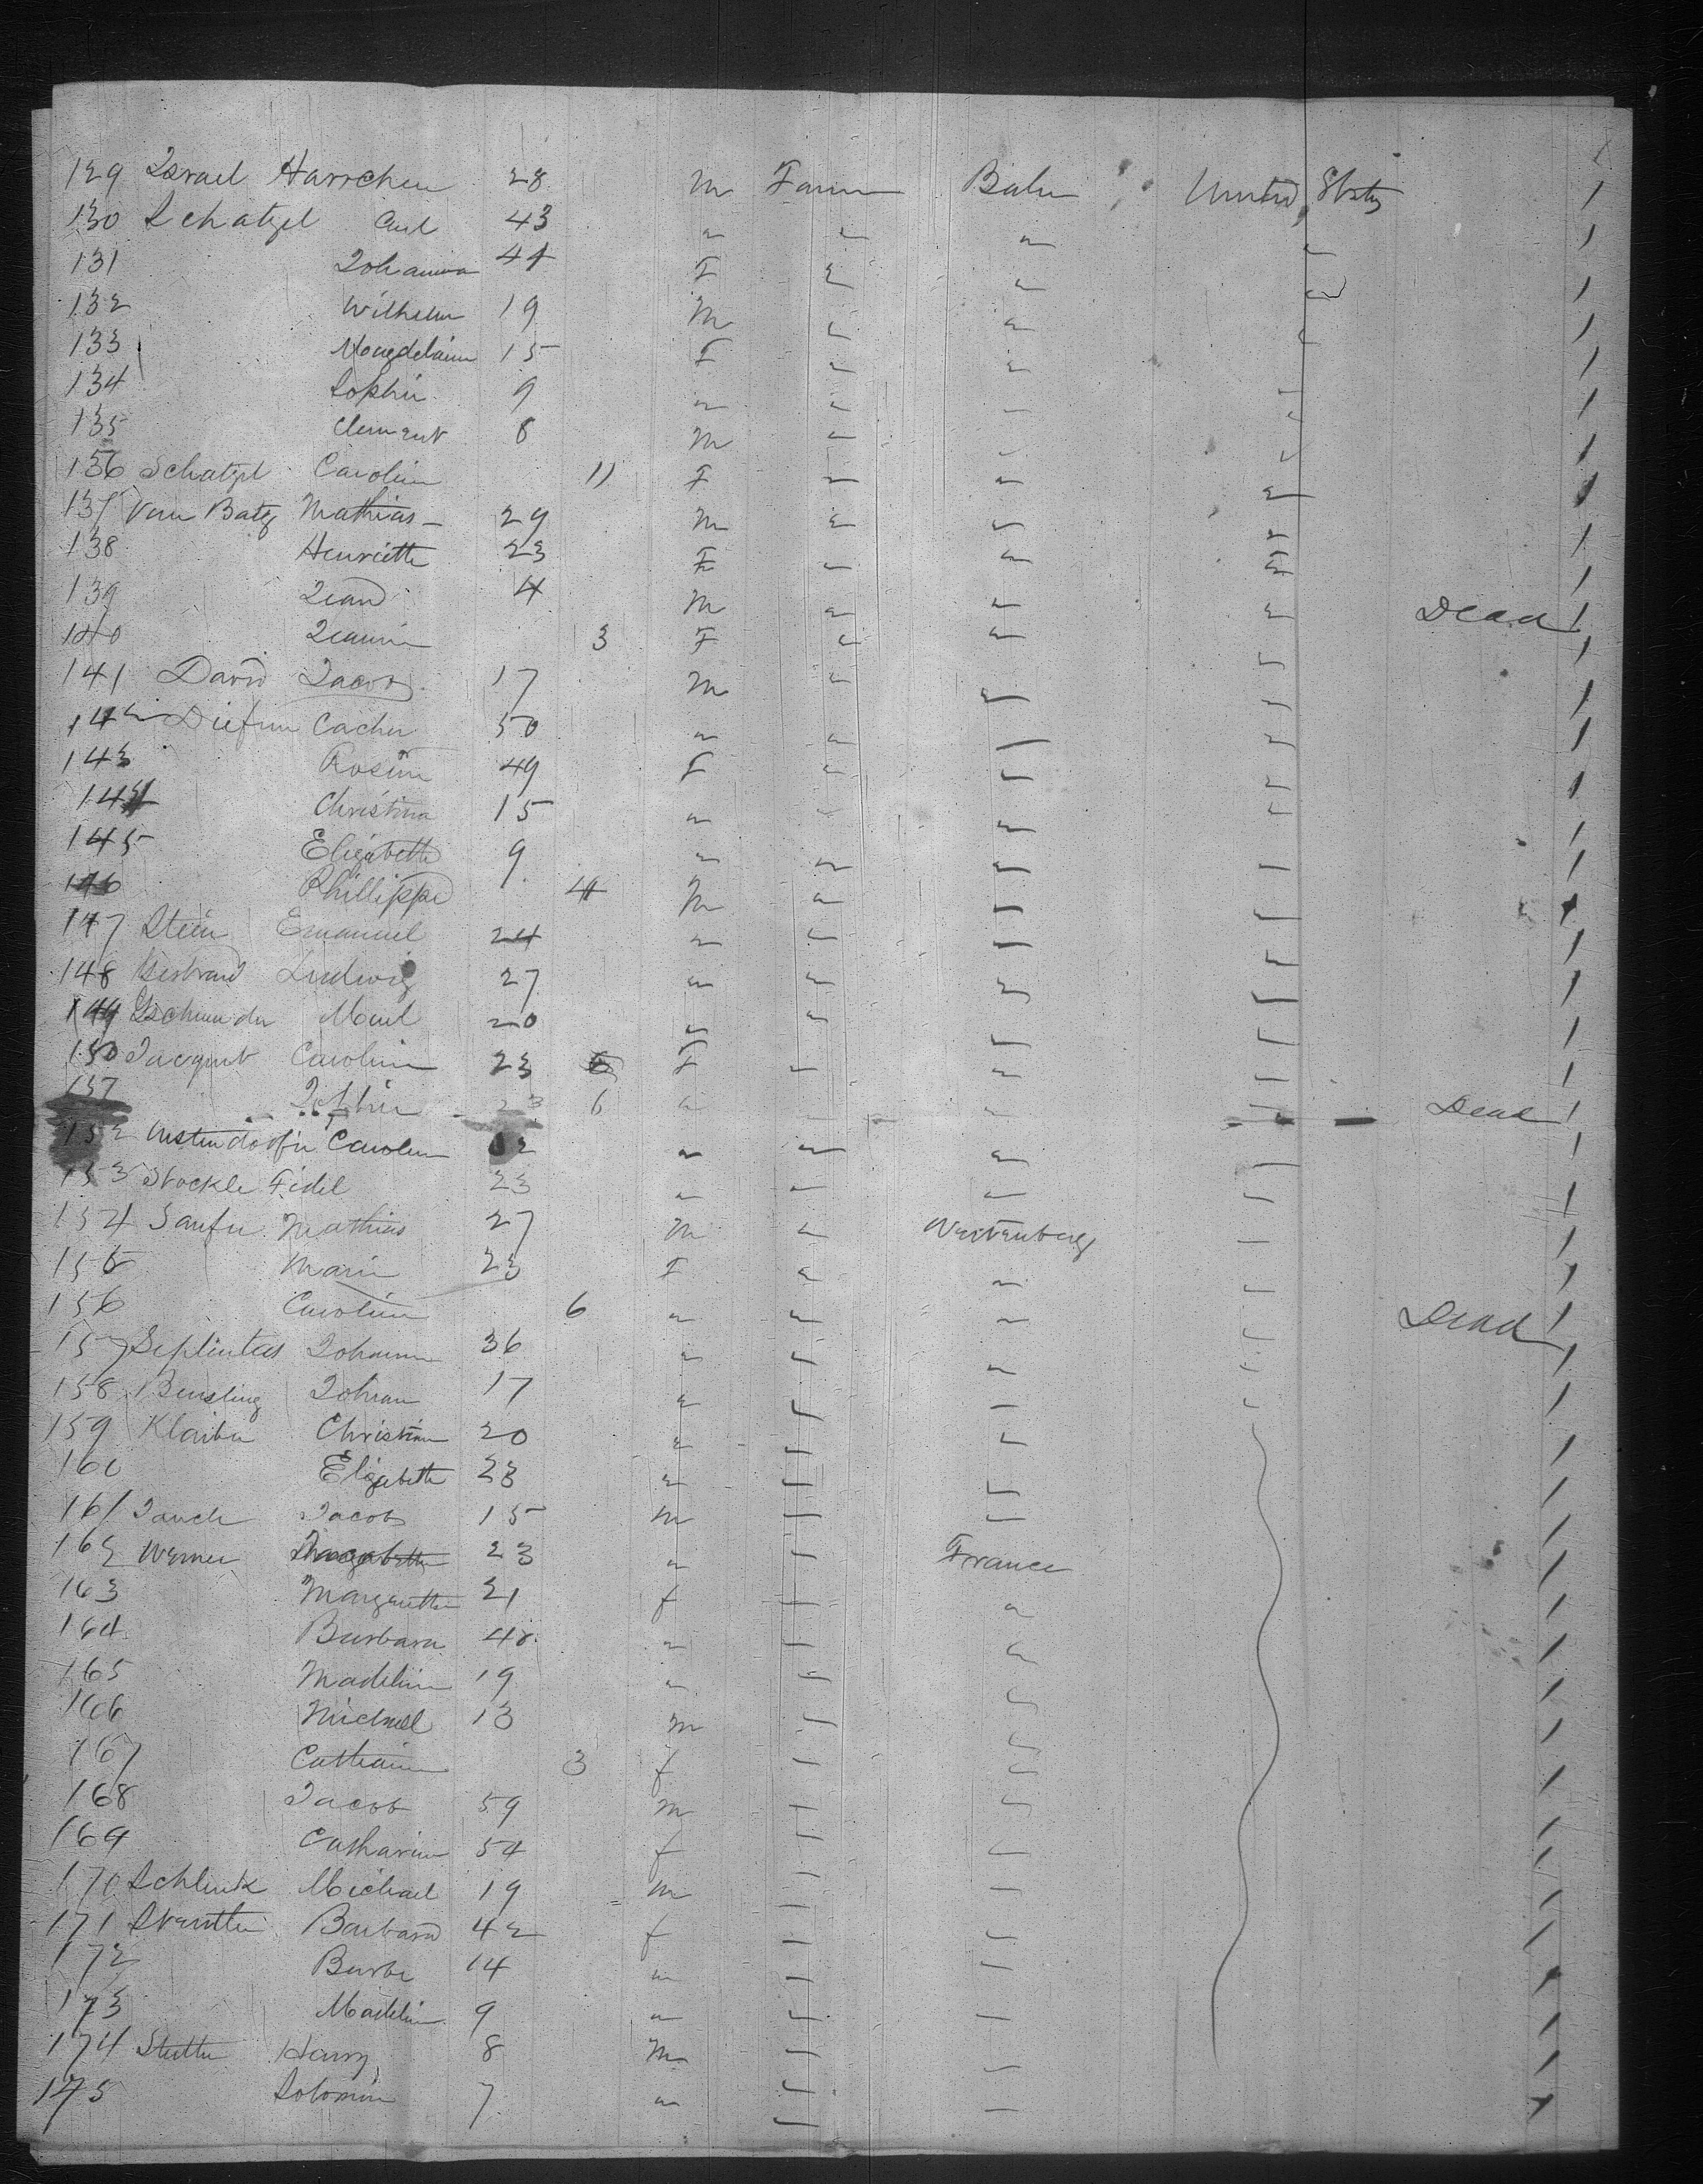 129 Israel Harrchen 28 M Farm Baln United Stats
130 Schatzel Carl 43 " " "
131 Johanna 44 F " "
132 Wilhelm 19 M " "
133 Mougdelaine 15 F " "
134 Sophie 9 " " "
135 Clement 8 M " "
136 Schatzel Caroline 11 F " "
137 Van Batz Mathias 29 M " "
138 Henriette 23 F " " "
139 Jean 4 M " " " Dead
140 Jeannie 3 F " "
141 David Jacob 17 M " "
142 Diefum Cacher 50 " "
143 Rosine 49 F "
144 Christina 15 " "
145 Elizabeth 9 " " "
146 Phillippe 4 M "
147 Stein Emanuel 24 "
148 Ludwig 27 " "
149 20 "
150 Jacquet Caroline 23 F
151 23 6 " " Dead
152 Caroline " " "
153 Stockle Fidel 23 " " "
154 Saufer Mathias 27 M " Wertenberg
155 Marie 23 F " "
156 Caroline 6 " " " Dead
157 Johann 36 " "
158 Bensling Johan 17 "
159 Klaiber Christian 20 "
160 Elizabeth 23 "
161 Jacob 15 M
162 Werner 23 " France
163 Margarethe 21 f "
164 Barbara 48 " "
165 Madeline 19 "
166 Michael 13 M
167 Catharine 3 f
168 Jacob 59 M
169 Catharine 54 f
170 Schlenk Michael 19 M
171 Barbara 42 f
172 Barbe 14 "
173 Madeline 9 "
174 Stutter Harry 8 M
175 Solomon 7 "